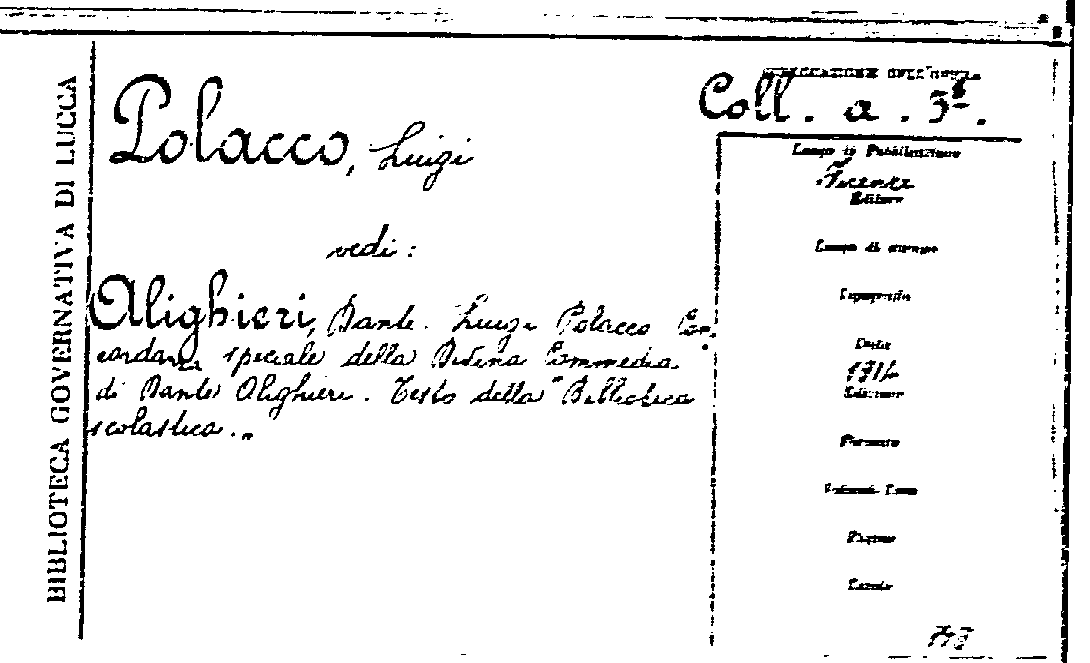 BIBLIOTECA GOVERNATIVA DI LUCCA
Polacco, Luigi
vedi:
Alighieri, Dante. Luigi Polacco Con-
cordanza speciale della Divina Commedia
di Dante Alighieri. Testo della "Biblioteca
scolastica.„
COLLOCAZIONE DELL'OPERA
Coll. a. 5ª.
Luogo di Pubblicazione
Firenze
Editore
Luogo di stampa
Tipografia
Data
Edizione
Formato
Volumi
Pagine
Tavole